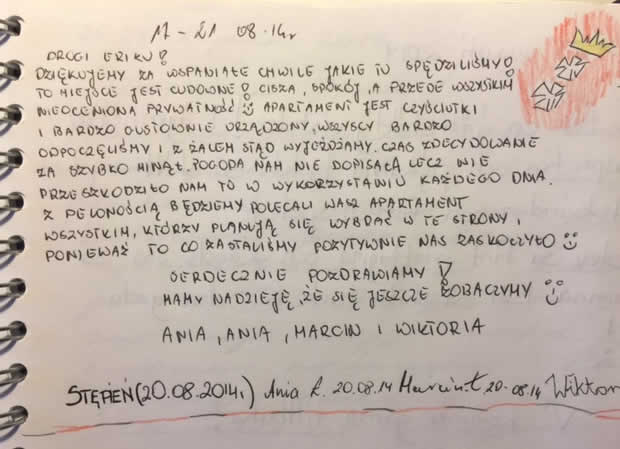 17 - 21 08.14r
DROGI ERIKU!
DZIĘKUJEMY ZA WSPANIAŁE CHWILE JAKIE TU SPĘDZILIŚMY!
TO MIEJSCE JEST CUDOWNE! CISZA, SPOKÓJ, A PRZEDE WSZYSTKIM
NIEOCENIONA PRYWATNOŚĆ APARTAMENT JEST CZYŚCIUTKI
I BARDZO GUSTOWNIE URZĄDZONY, WSZYSCY BARDZO
ODPOCZĘLIŚMY I Z ŻALEM STĄD WYJEŻDŻAMY. CZAS ZDECYDOWANIE
ZA SZYBKO MINĄŁ. POGODA NAM NIE DOPISAŁA LECZ NIE
PRZESZKODZIŁO NAM TO W WYKORZYSTANIU KAŻDEGO DNIA.
Z PEWNOŚCIĄ BĘDZIEMY POLECALI WASZ APARTAMENT
WSZYSTKIM, KTÓRZY PLANUJĄ SIĘ WYBRAĆ W TE STRONY,
PONIEWAŻ TO CO ZASTALIŚMY POZYTYWNIE NAS ZASKOCZYŁO
SERDECZNIE POZDRAWIAMY!
MAMY NADZIEJĘ, ŻE SIĘ JESZCZE ZOBACZYMY
ANIA, ANIA, MARCIN I WIKTORIA
STĘPIEŃ (20.08.2014r.) Ania K. 20.08.14 Marcin Ł 20.08.14